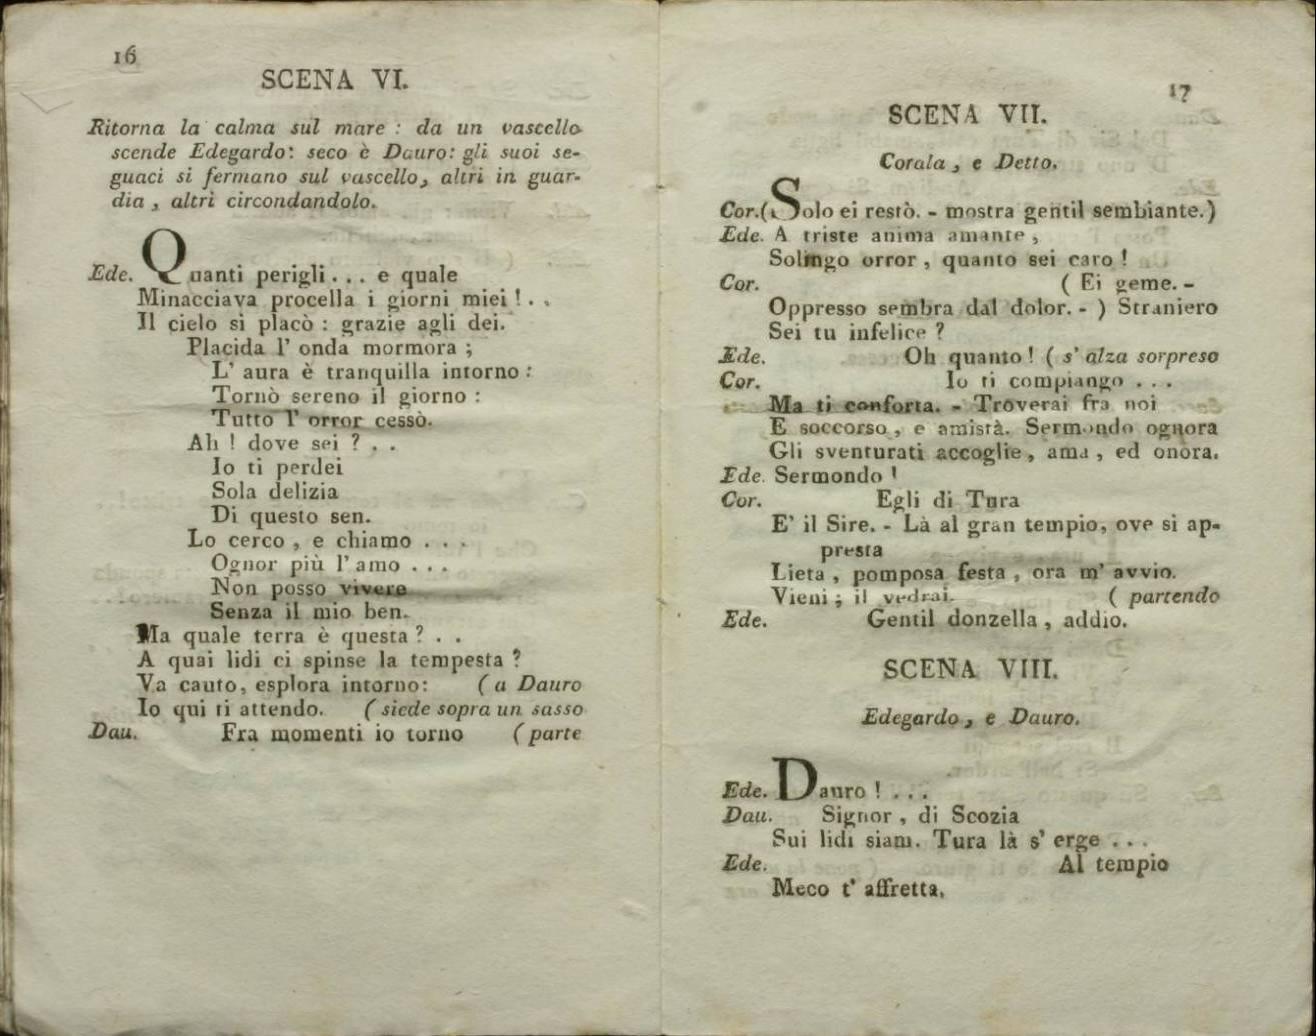 16
SCENA VI.
Ritorna la calma sul mare : da un vascello
scende Edegardo: seco è Dauro: gli suoi se-
guaci si fermano sul vascello, altri in guar-
dia, altri circondandolo.
Ede. Quanti perigli... e quale
Minacciava procella i giorni miei!..
Il cielo si placò : grazie agli dei.
Placida l' onda mormora ;
L' aura è tranquilla intorno :
Tornò sereno il giorno :
Tutto l' orror cessò.
Ah ! dove sei ? . .
Io ti perdei
Sola delizia
Di questo sen.
Lo cerco, e chiamo . . .
Ognor più l' amo . . .
Non posso vivere
Senza il mio ben.
Ma quale terra è questa ? . .
A quai lidi ci spinse la tempesta ?
Va cauto, esplora intorno: ( a Dauro
Io qui ti attendo. ( siede sopra un sasso
Dau. Fra momenti io torno ( parte
17
SCENA VII.
Corala, e Detto.
Cor.( Solo ei restò. - mostra gentil sembiante.)
Ede. A triste anima amante,
Solingo orror, quanto sei caro !
Cor. ( Ei geme. -
Oppresso sembra dal dolor. - ) Straniero
Sei tu infelice ?
Ede. Oh quanto ! ( s' alza sorpreso
Cor. Io ti compiango . . .
Ma ti conforta. - Troverai fra noi
E soccorso, e amistà. Sermondo ognora
Gli sventurati accoglie, ama, ed onora.
Ede. Sermondo !
Cor. Egli di Tura
E' il Sire. - Là al gran tempio, ove si ap-
presta
Lieta, pomposa festa, ora m' avvio.
Vieni ; il vedrai. ( partendo
Ede. Gentil donzella, addio.
SCENA VIII.
Edegardo, e Dauro.
Ede. Dauro ! . . .
Dau. Signor, di Scozia
Sui lidi siam. Tura là s' erge . . .
Ede. Al tempio
Meco t' affretta.